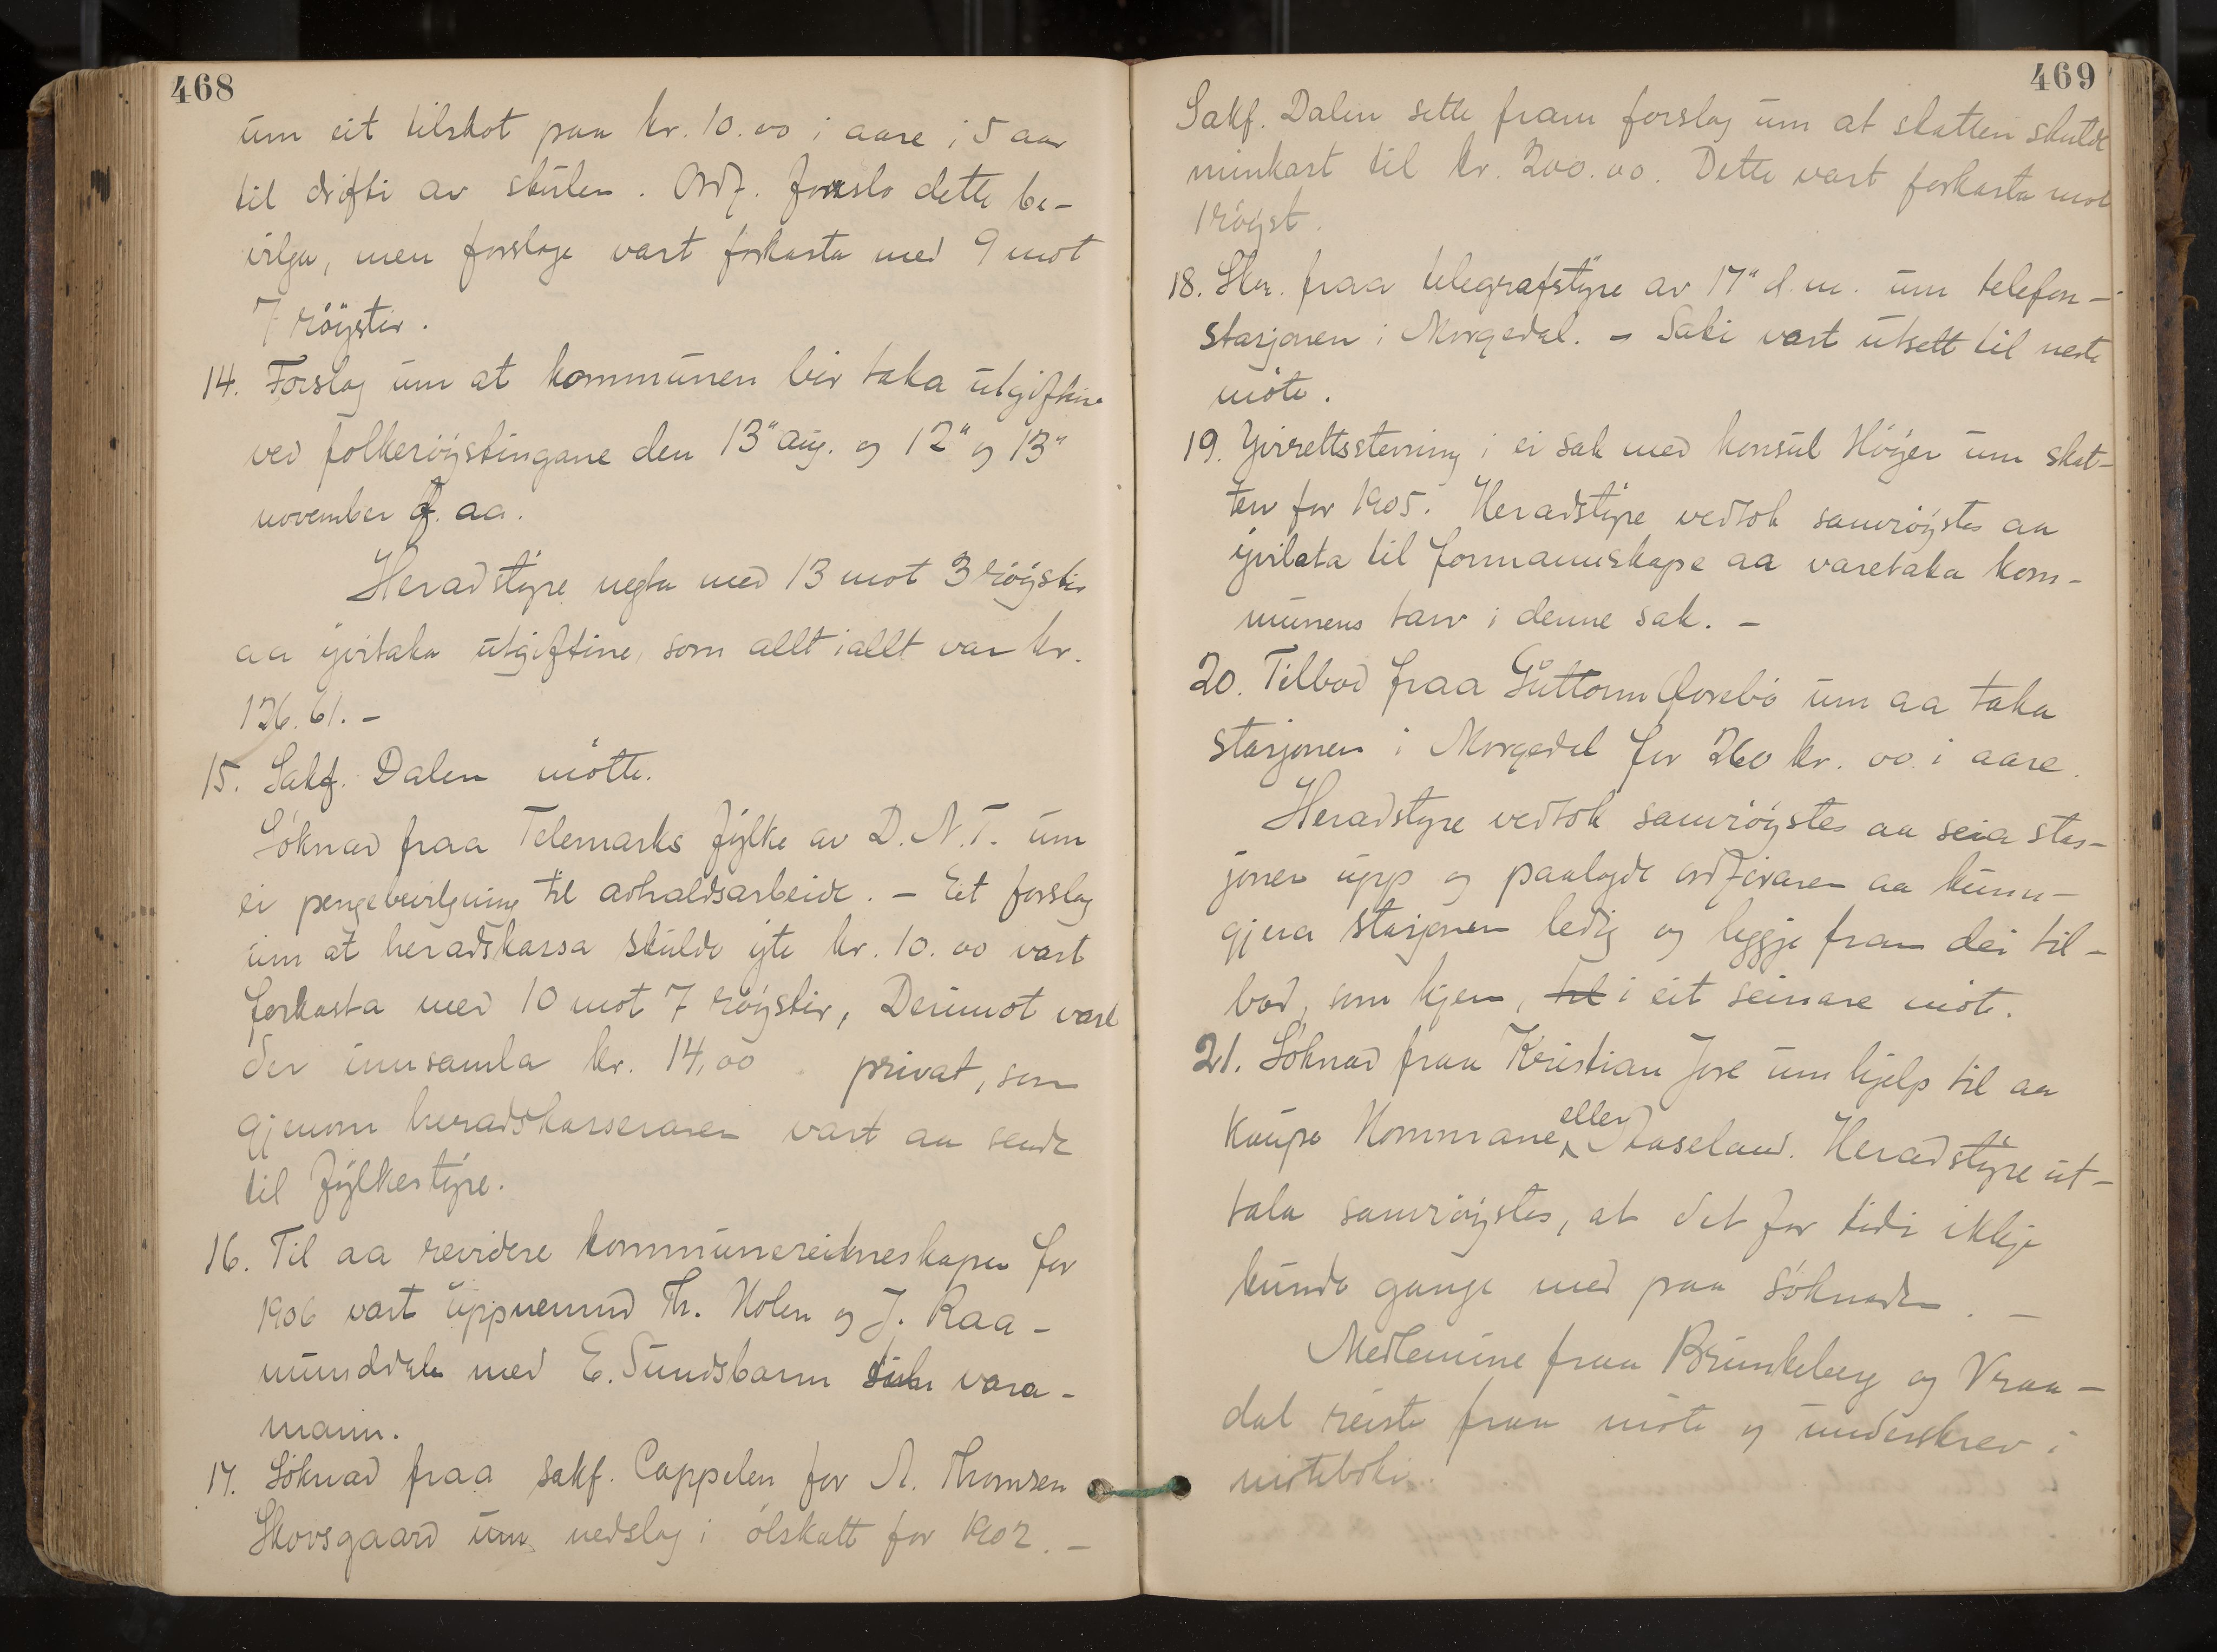 468
um eit tilskot paa kr. 10.00 i aare i 5 aar
til drifti av skulen. Ordf. foreslo dette be-
vilga, men forslage vart forkasta med 9 mot
7 röyster.
14. Forslag um at kommunen bör taka utgiftine
ved folkeröystingane den 13" aug. og 12" og 13"
november f. aa.
Heradstyre negta med 13 mot 3 röyster
aa yvitaka utgiftine, som allt i allt var kr.
126.61. -
15. Sakf. Dalen mötte.
Söknad fraa Telemarks fylke av D.N.T. um
ei pengebevilgning til avhaldsarbeide. - Eit forslag
um at heradskassa skulde yte kr. 10.00 vart
forkasta med 10 mot 7 röyster, Derimot vart
der innsamla kr. 14,00 privat, som
gjenom heradskasseraren vart aa sende
til fylkestyre.
16. Til aa revidere kommunereikneskapen for
1906 vart uppnemnd Th. Holen og J. Raa-
munddalen med E. Sundsbarm vara-
mann.
17. Söknad fraa sakf. Cappelen for A. Thomsen
Skovsgaard um nedslag i ölskatt for 1907. -
469
Sakf. Dalen sette fram forslag um at skatten skulde
minkast til kr. 200.00. Dette vart forkasta mot
1 röyst.
18. Skr. fraa telegrafstyre av 17" d.m. um telefon-
stasjonen i Morgedal. - Saki vart utsett til neste
möte.
19. Yvirettsstevning i ei sak med konsul Höyer um skat-
ten for 1905. Heradstyre vedtok samröystes aa
yvilata til formannskape aa varetaka kom-
munens tarv i denne sak. -
20. Tilbod fraa Guttorm Överbö um aa taka
stasjonen i Morgedal for 260 kr. 00 i aare.
Heradstyre vedtok samröystes aa seia stas-
jonen upp og paalagde ordföraren aa kunn-
gjera stasjonen ledig og leggje fram dei til-
bod, som kjem, til i eit seinare möte.
21. Söknad fraa Kristian Jore um hjelp til aa
kaupe Nommane eller Staseland. Heradstyre ut-
tala samröystes, at det for tidi ikkje
kunde gange med paa söknaden. -
Medlemine fraa Brunkeberg og Vraa-
dal reiste fraa möte og underskrev i
möteboki.